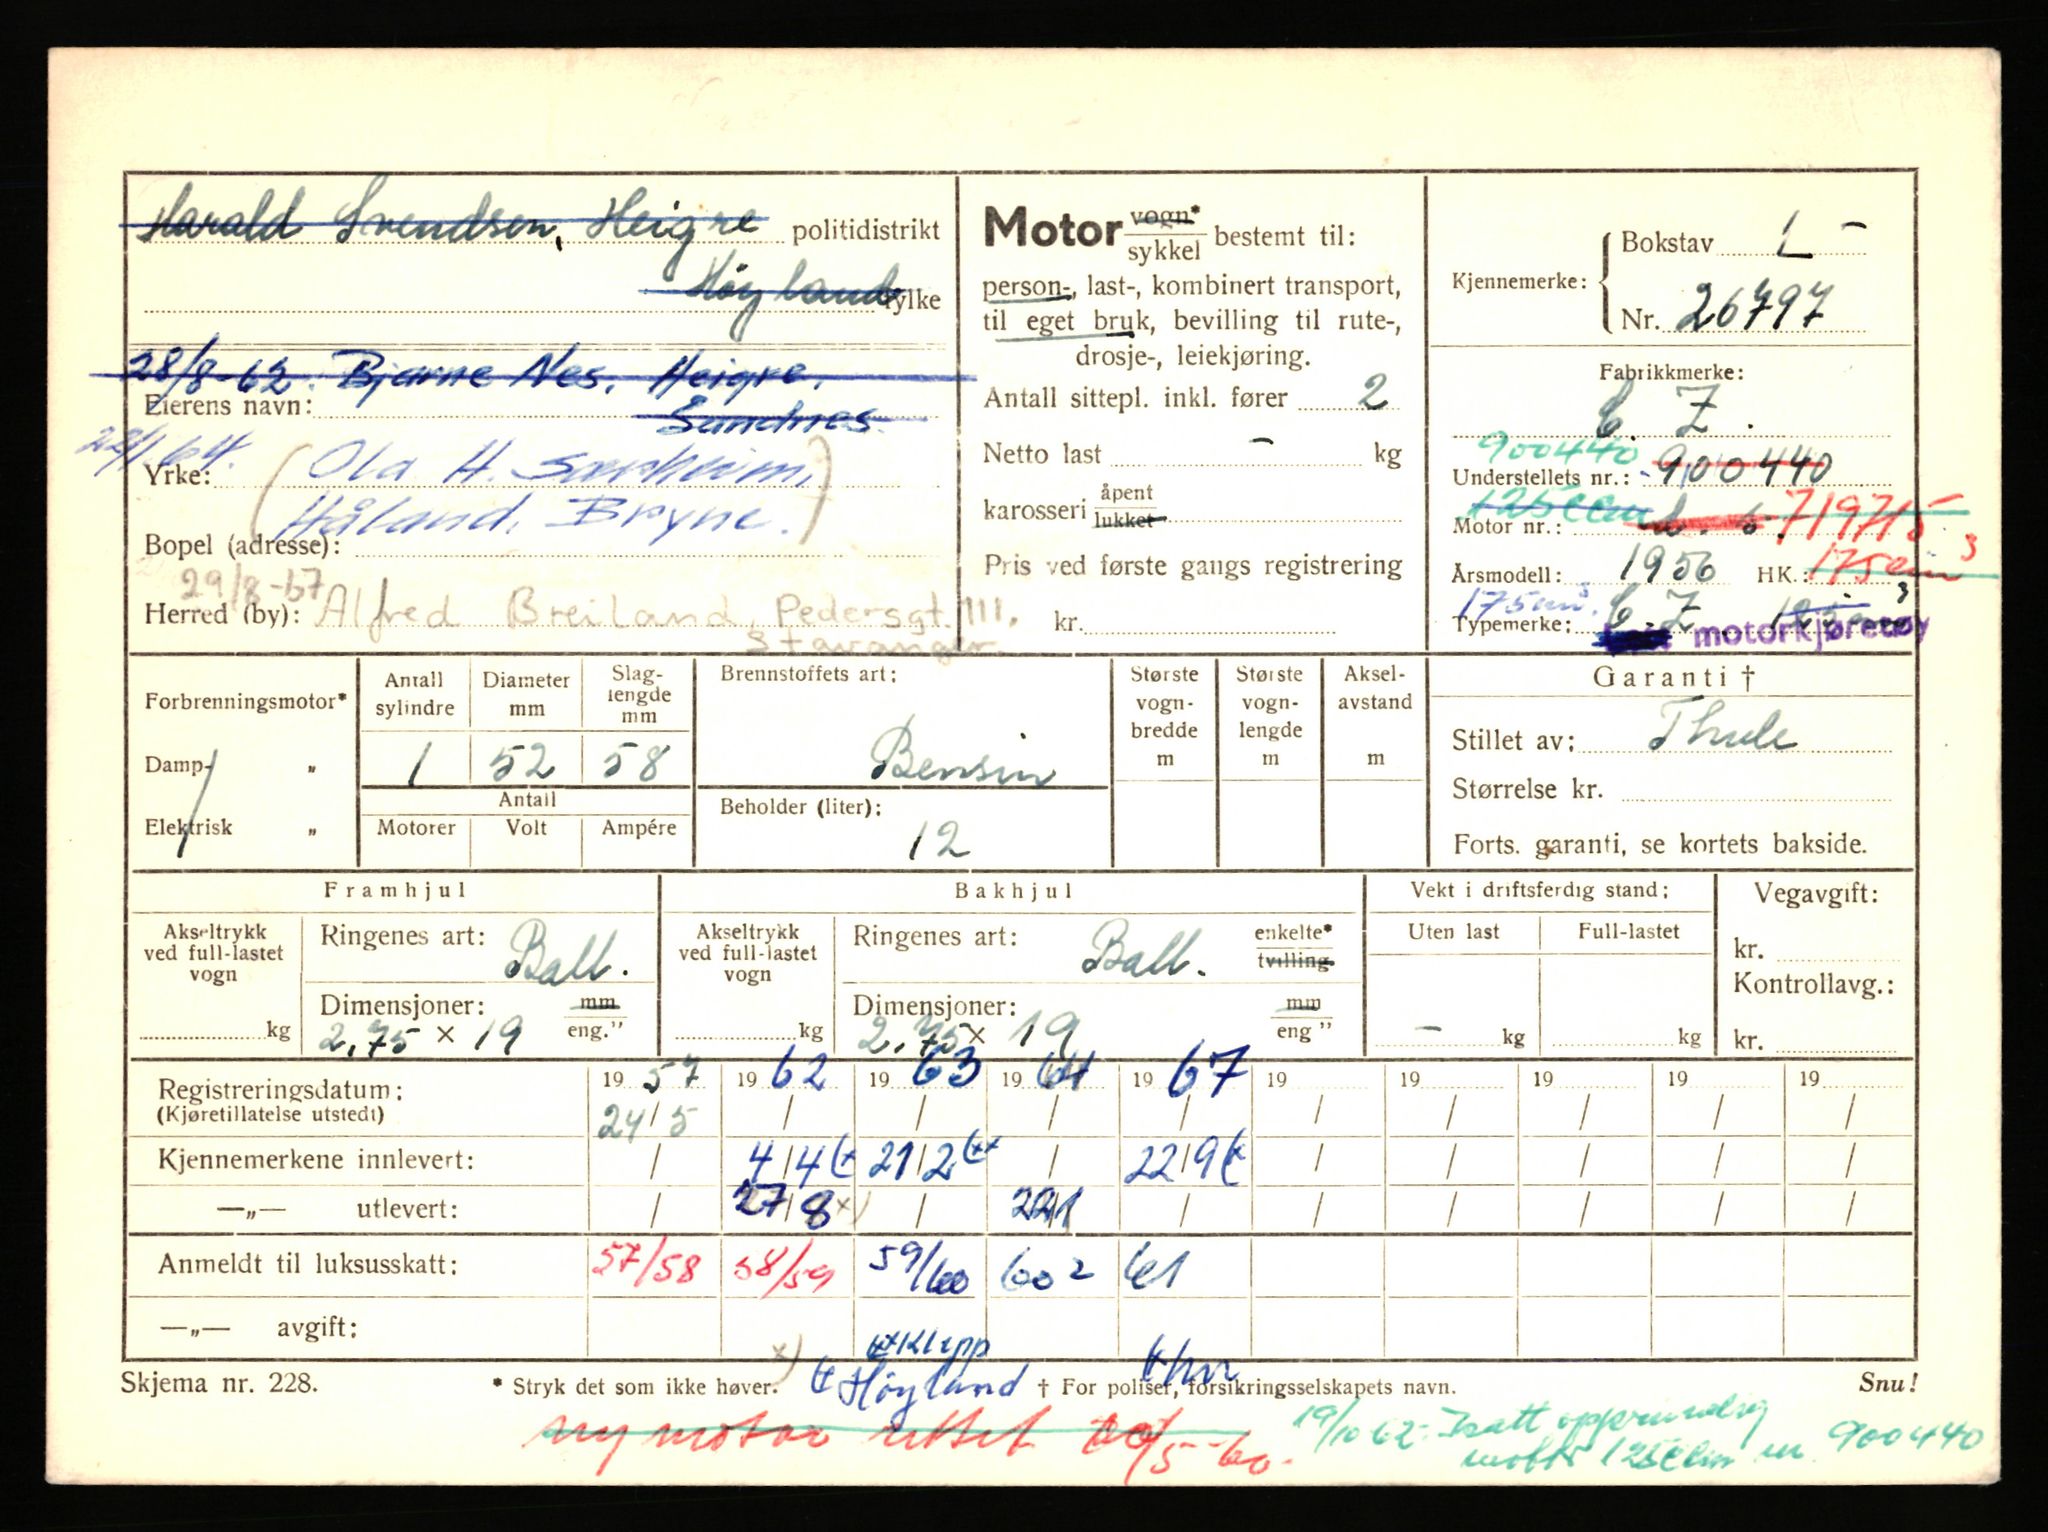 Harald Svendsen, Heigre politidistrikt
Høyland fylke
28/8-62. Bjarne Nes, Heigre,
Eierens navn: Sandnes
22/1 64. Yrke: (Ola H. Særheim,
Håland, Bryne.)
Bopel (adresse):
29/8-67
Herred (by): Alfred Breiland, Pedersgt. 111.
Stavanger.
Motor vogn* / sykkel bestemt til:
person-, last-, kombinert transport,
til eget bruk, bevilling til rute-,
drosje-, leiekjøring.
Antall sittepl. inkl. fører 2
Netto last - kg
karosseri åpent / lukket
Pris ved første gangs registrering
kr.
Kjennemerke: Bokstav L -
Nr. 26797
Fabrikkmerke:
C. Z.
900440
Understellets nr.: 900440
125ccm
Motor nr.: 719715
Årsmodell: 1956 HK.: 175cm³
175cm³.
Typemerke: C. Z. 125cm³
motorkjøretøy
Forbrenningsmotor*
Damp- „
Elektrisk „
Antall sylindre
Diameter mm
Slag-lengde mm
1 52 58
Antall
Motorer Volt Ampére
Brennstoffets art:
Bensin
Beholder (liter):
12
Største vogn-bredde m
Største vogn-lengde m
Aksel-avstand m
Garanti †
Stillet av: Thule
Størrelse kr.
Forts. garanti, se kortets bakside.
Framhjul
Akseltrykk ved full-lastet vogn
kg
Ringenes art: Ball.
Dimensjoner: mm / eng."
2,75 × 19
Bakhjul
Akseltrykk ved full-lastet vogn
kg
Ringenes art: Ball. enkelte* / tvilling
Dimensjoner: mm / eng "
2,75 × 19
Vekt i driftsferdig stand:
Uten last Full-lastet
- kg kg
Vegavgift:
kr.
Kontrollavg.:
kr.
Registreringsdatum: 19 57 19 62 19 63 19 64 19 67 19 19 19 19 19
(Kjøretillatelse utstedt) 24/5 / / / / / / / / /
Kjennemerkene innlevert: / 4/4 (x 21/2 (xx / 22/9 (x / / / / /
—„— utlevert: / 27/8 x) / 22/1 / / / / / /
Anmeldt til luksusskatt: 57/58 58/59 59/60 60 2 61
—„— avgift:
x) (x Høyland (xx Klepp
Skjema nr. 228. * Stryk det som ikke høver. † For poliser, forsikringsselskapets navn. Snu!
ny motor /5-60.
19/10 62. Isatt opprinnelig
motor 125ccm nr 900440